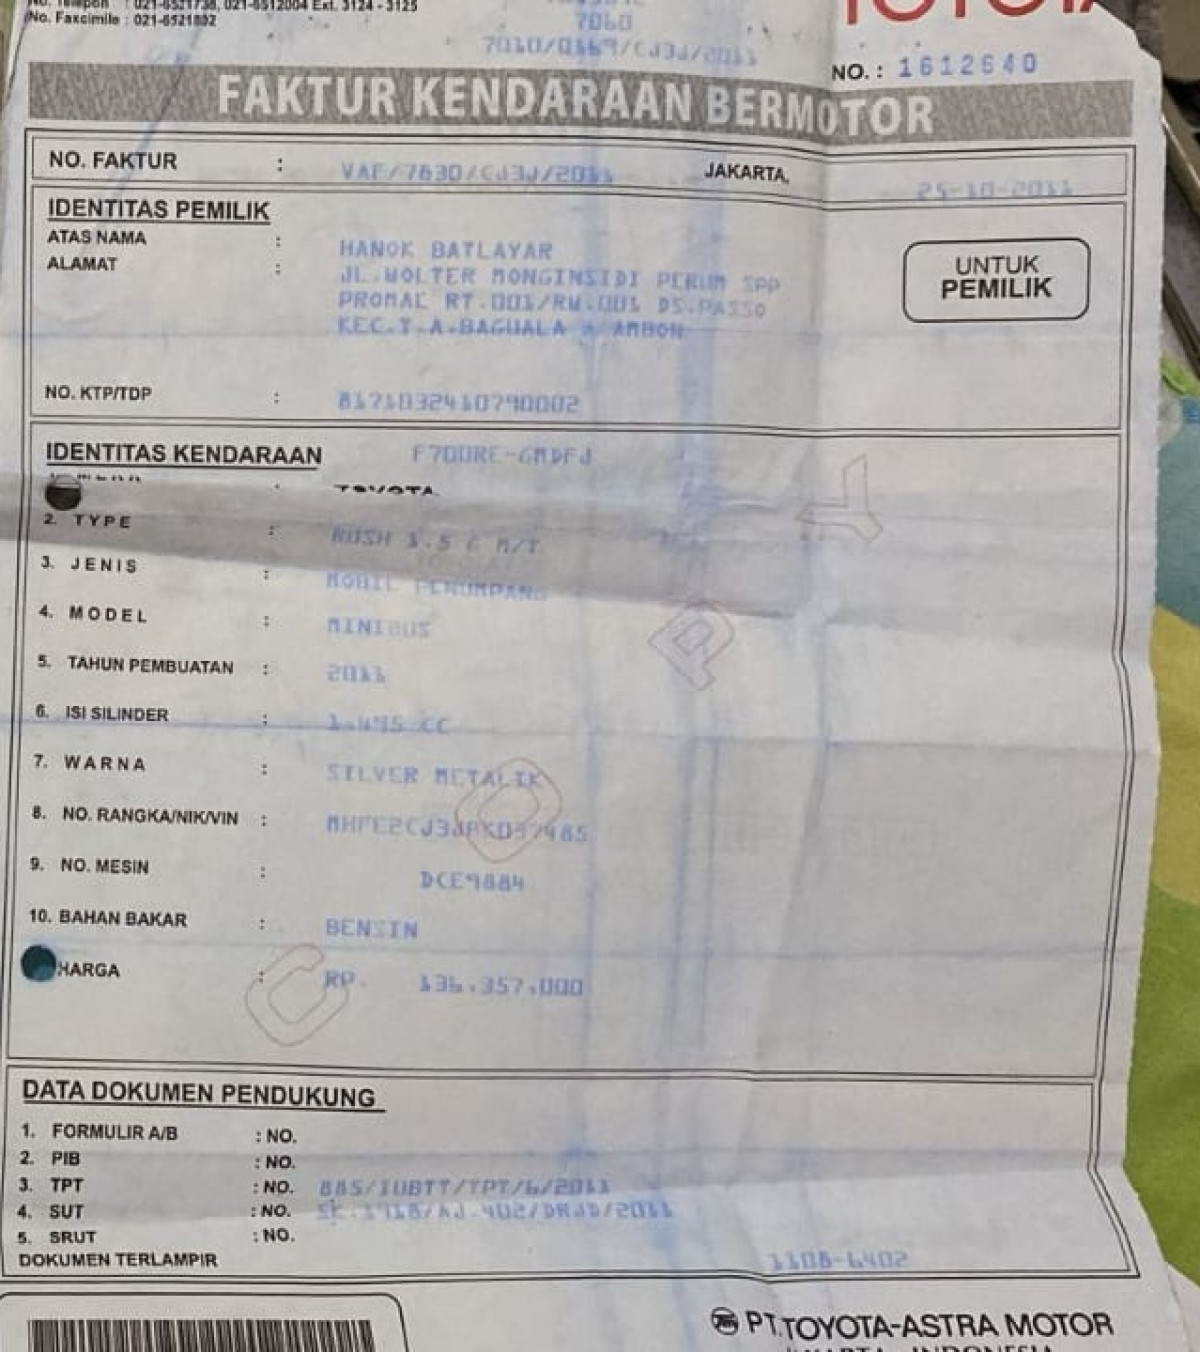 No. Telepon : 021-6521738, 021-6512004 Ext. 3124 - 3125
No. Faxcimile : 021-6521802
7060
7010/0169/CJ3J/2011
TOYOTA
NO. : 1612640
FAKTUR KENDARAAN BERMOTOR
NO. FAKTUR : VAF/7830/CJ3J/2011 JAKARTA, 25-10-2011
IDENTITAS PEMILIK
ATAS NAMA : HANOK BATLAYAR
ALAMAT : JL.WOLTER MONGINSIDI PERUM SPP
PROMAL RT.001/RW.001 DS.PASSO
KEC.T.A.BAGUALA AMBON
UNTUK
PEMILIK
NO. KTP/TDP : 8171032410790002
IDENTITAS KENDARAAN F700RE-GMDFJ
: TOYOTA
2. TYPE : RUSH 1.5 G M/T
3. JENIS : MOBIL PENUMPANG
4. MODEL : MINIBUS
5. TAHUN PEMBUATAN : 2011
6. ISI SILINDER : 1.495 CC
7. WARNA : SILVER METALIK
8. NO. RANGKA/NIK/VIN : MHFE2CJ3JBK037485
9. NO. MESIN : DCE9884
10. BAHAN BAKAR : BENSIN
HARGA : RP. 136.357.000
COPY
DATA DOKUMEN PENDUKUNG
1. FORMULIR A/B : NO.
2. PIB : NO.
3. TPT : NO. 885/IUBTT/TPT/6/2011
4. SUT : NO. SK.1918/AJ.402/DRJD/2011
5. SRUT : NO.
DOKUMEN TERLAMPIR 1108-6402
PT.TOYOTA-ASTRA MOTOR
JAKARTA - INDONESIA